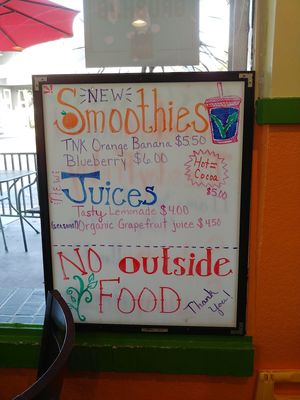 NEW
Smoothies
TNK Orange Banana $5.50
Blueberry $6.00
Hot
Cocoa
$5.00
Juices
Tasty Lemonade $4.00
(seasonal) Organic Grapefruit juice $4.50
NO outside
FOOD
Thank
You!